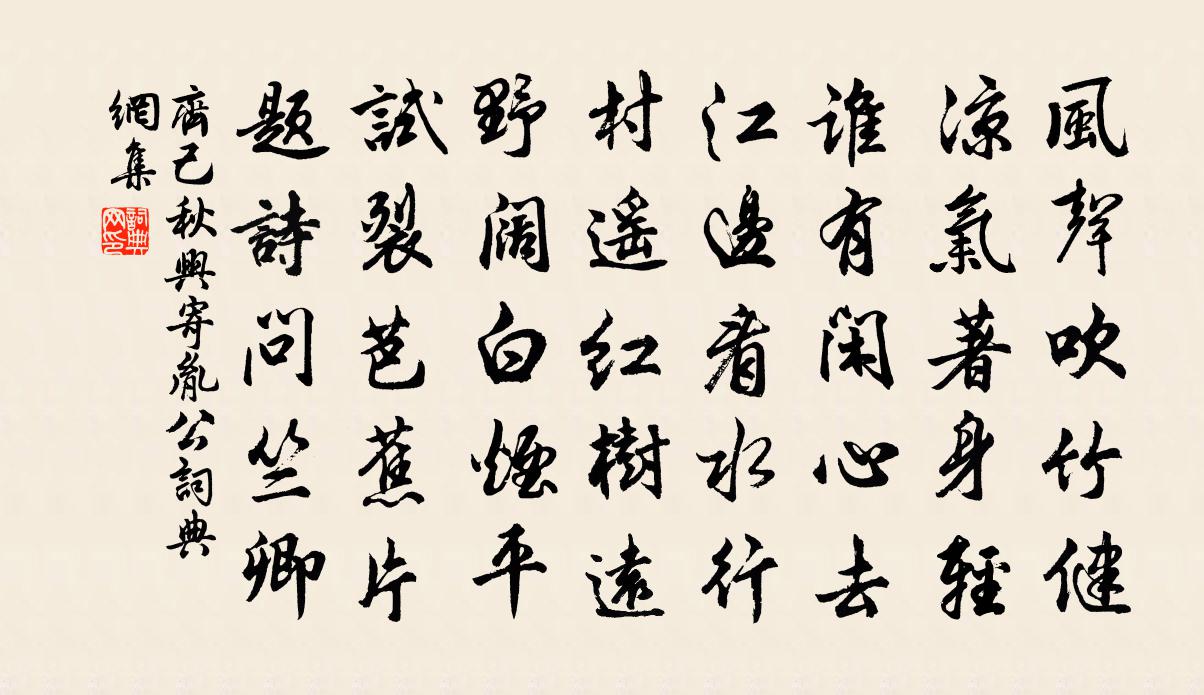 風聲吹竹健
涼氣著身輕
誰有閑心去
江邊看水行
村遥紅樹遠
野闊白煙平
試裂芭蕉片
題詩問竺卿
齊己秋興寄胤公詞典
網集
詞典
网印